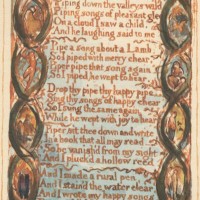 Piping down the valleys wild
Piping songs of pleasant glee
On a cloud I saw a child
And he laughing said to me
Pipe a song about a Lamb
So I piped with merry chear
Piper pipe that song again
So I piped he wept to hear
Drop thy pipe thy happy pipe
Sing thy songs of happy chear
So I sung the same again
While he wept with joy to hear
Piper sit thee down and write
In a book that all may read
So he vanish'd from my sight
And I pluck'd a hollow reed
And I made a rural pen
And I stain'd the water clear
And I wrote my happy songs